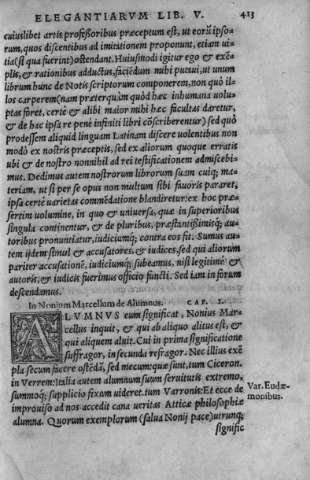 ELEGANTIARVM LIB. V. 413
cuiuslibet artis professoribus præceptum est, ut eorū ipso-
rum, quos discentibus ad imitationem proponunt, etiam ui-
tia (si qua fuerint) ostendant. Huiusmodi igitur ego & exē-
plis, & rationibus adductus, faciēdum mihi putaui, ut unum
librum hunc de Notis scriptorum componerem, non quò il-
los carperem (nam præterquàm quòd hæc inhumana uolu-
ptas foret, certè & alibi maior mihi hæc facultas daretur,
& de hac ipsa re penè infiniti libri cōscriberentur) sed quò
prodessem aliquid linguam Latinam discere uolentibus non
modò ex nostris præceptis, sed ex aliorum quoque erratis
ubi & de nostro nonnihil ad rei testificationem admiscebi-
mus. Dedimus autem nostrorum librorum suam cuiq; ma-
teriam, ut si per se opus non multum sibi fauoris pararet,
ipsa certè uarietas commēdatione blandiretur: ex hoc præ-
sertim uolumine, in quo & uniuersa, quæ in superioribus
singula continentur, & de pluribus, præstantißimisq́; au-
toribus pronuntiatur, iudiciumq́; contra eos fit. Sumus au-
tem ijdem simul & accusatores, & iudices, sed qui aliorum
pariter accusationē, iudiciumq́; subeamus, nisi legitimè &
autoris, & iudicis fuerimus officio functi. Sed iam in forum
descendamus.
In Nonium Marcellum de Alumnus. CAP. I.
ALVMNVS eum significat, Nonius Mar-
cellus inquit, & qui ab aliquo alitus est, &
qui aliquem aluit. Cui in prima significatione
suffragor, in secunda refragor. Nec illius exē
pla secum facere ostēdā, sed mecum: quæ sunt, tum Ciceron.
in Verrem: Italiæ autem alumnum suum seruitutis extremo,
summoq́; supplicio fixam uideret. tum Varronis: Et ecce de
improuiso ad nos accedit cana ueritas Atticæ philosophiæ
alumna. Quorum exemplorum (salua Nonij pace) utrunq;
signific
Var. Eudæ-
monibus.